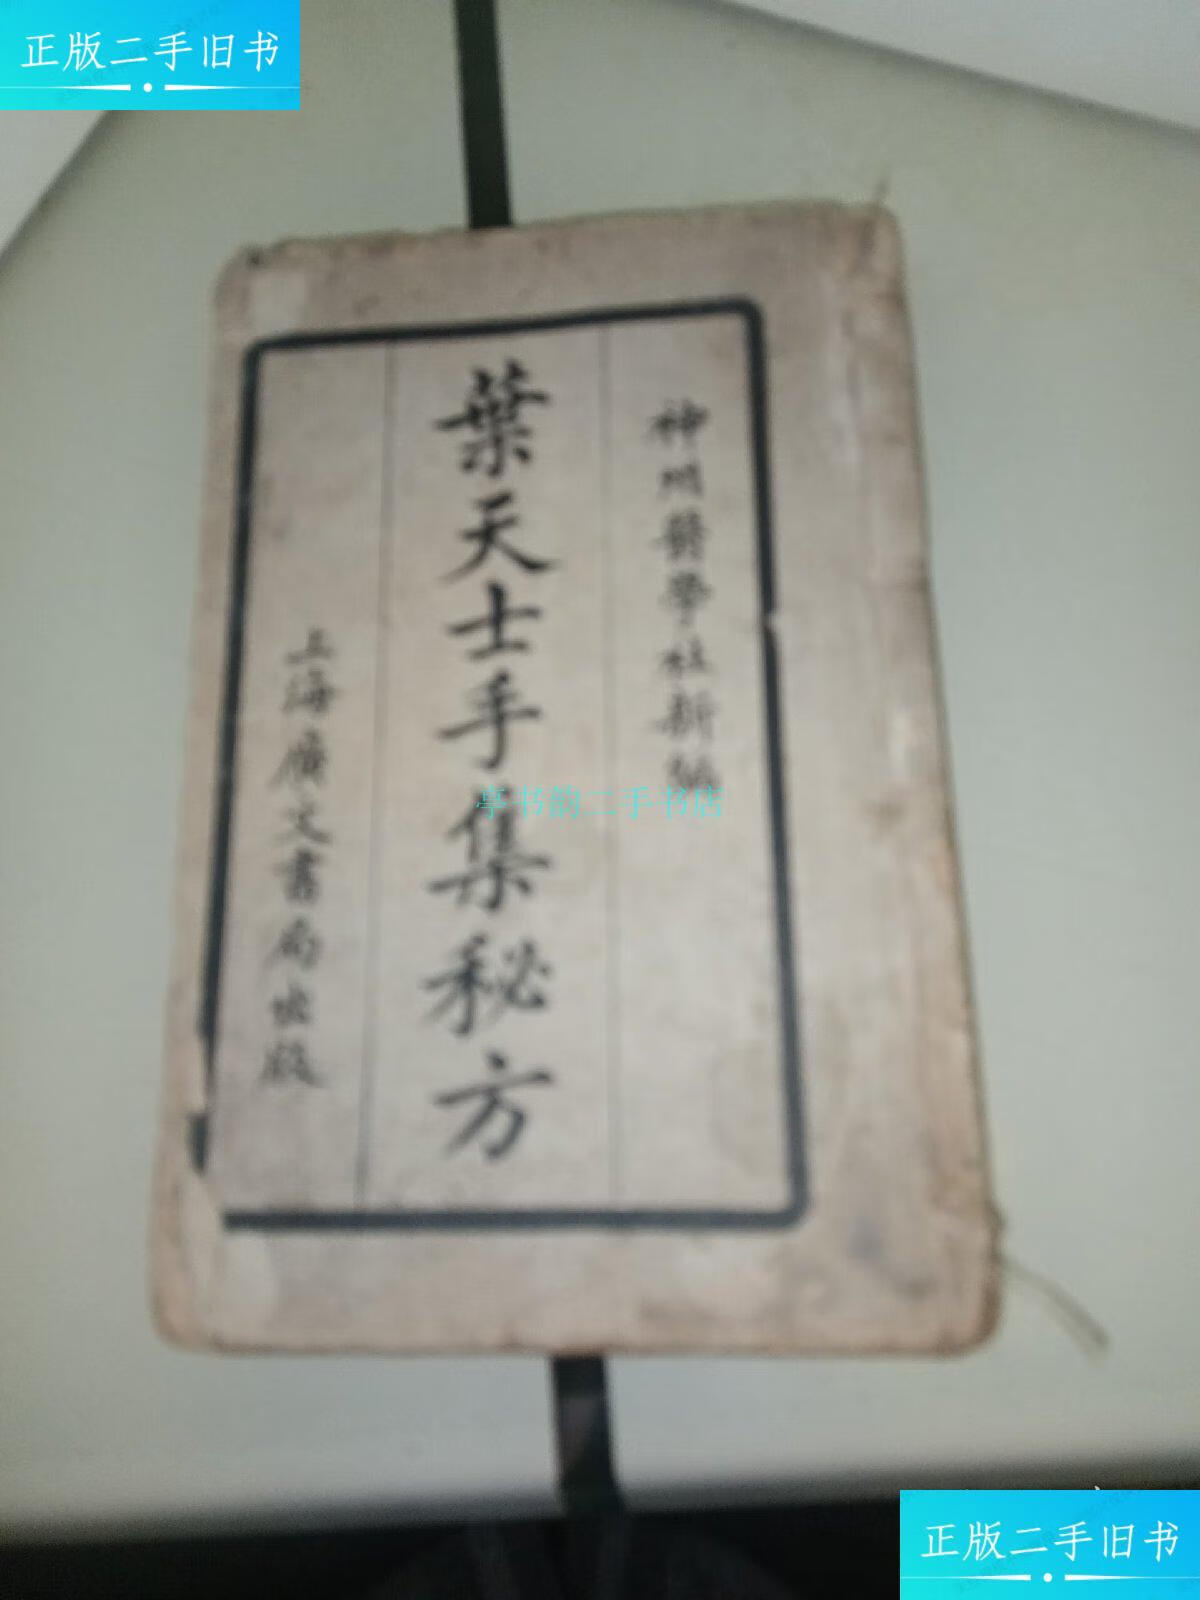 正版二手旧书
神州醫學社新編
葉天士手集秘方
上海廣文書局出版
亭书韵二手书店
正版二手旧书